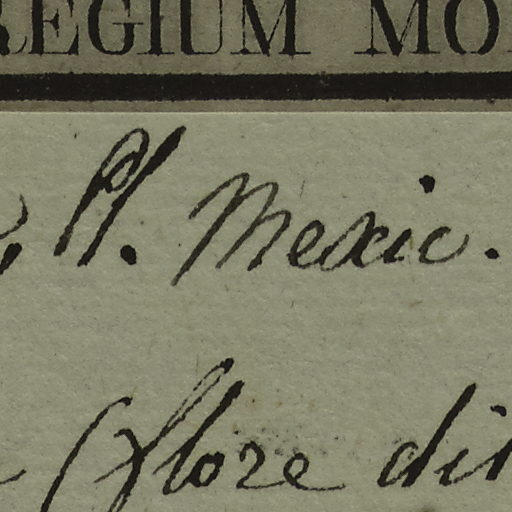 REGIUM MO
Pl. Mexic.
(flore di